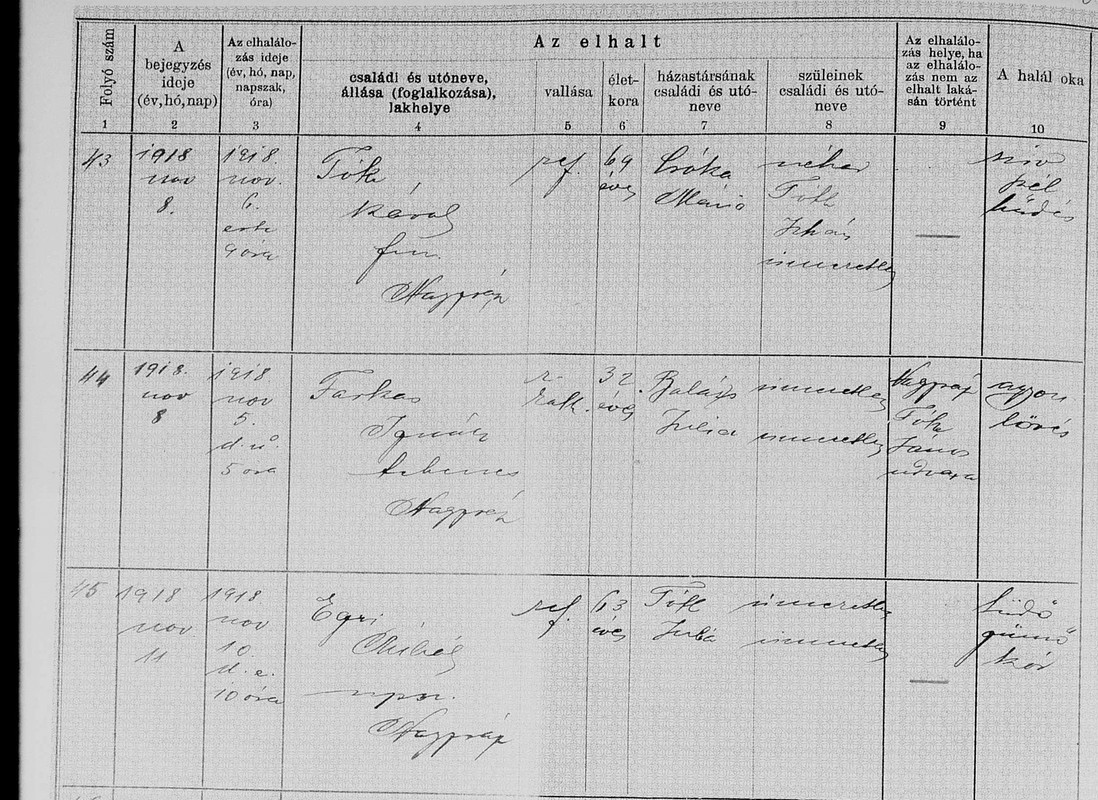 Folyó szám
A bejegyzés ideje (év, hó, nap)
Az elhalálo-
zás ideje
(év, hó, nap,
napszak,
óra)
Az elhalt
családi és utóneve,
állása (foglalkozása),
lakhelye
vallása
élet-
kora
házastársának
családi és utó-
neve
szüleinek
családi és utó-
neve
Az elhalálo-
zás helye, ha
az elhalálo-
zás nem az
elhalt laká-
sán történt
A halál oka
1 2 3 4 5 6 7 8 9 10
43
1918
nov
8.
1918.
nov.
6.
este
9 óra
Tóth
Károly
ref.
69
éves
Cróka
Mária
néhai
Tóth
István
ismeretlen
szív
hüdés
44
1918.
nov
8
1918
nov
5.
d. u.
5 óra
Farkas
Ignácz
r.
kath.
32
éves
Balázs
Julia
ismeretlen
ismeretlen
Tóth
János
udvara
agyon
lövés
45
1918
nov
11
1918
nov
10
d. e.
10 óra
Egri
Mihály
npsz.
ref.
63
éves
Tóth
Julia
ismeretlen
ismeretlen
tüdő
gümő
kór